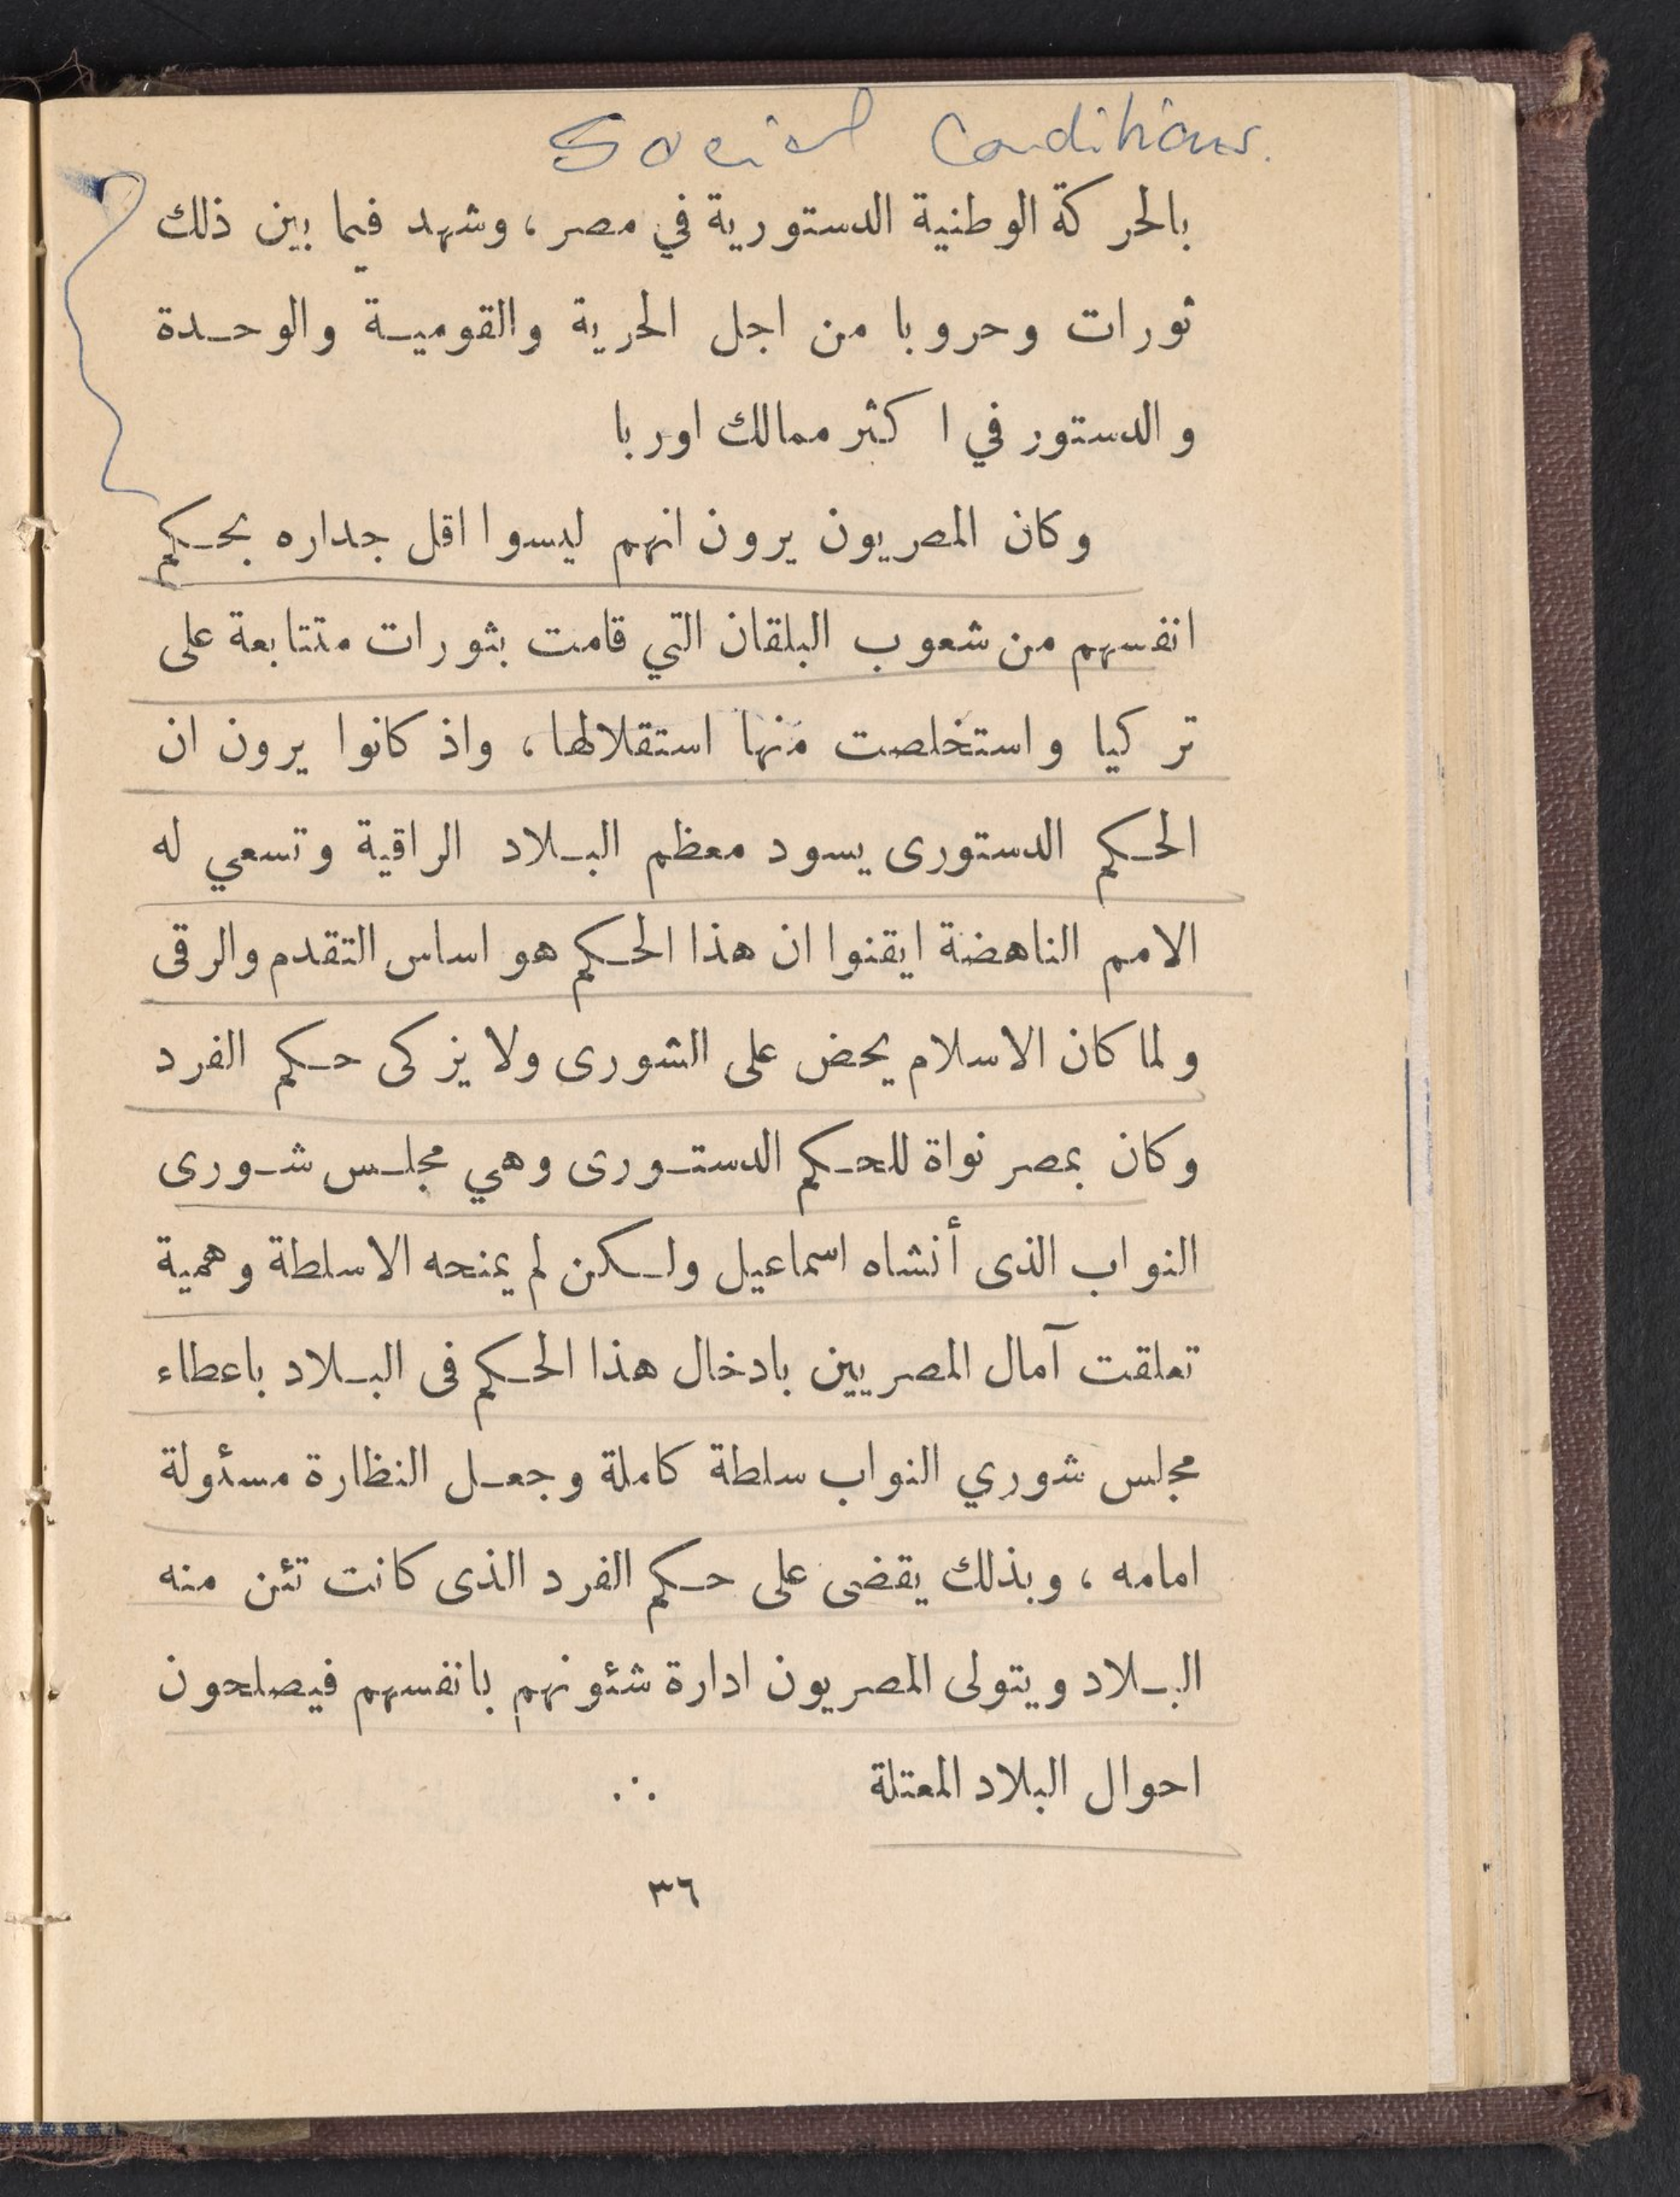 Social Conditions.
بالحركة الوطنية الدستورية في مصر، وشهد فيما بين ذلك
ثورات وحروبا من اجل الحرية والقوميـة والوحـدة
والدستور في اكثر ممالك اوربا
وكان المصريون يرون انهم ليسوا اقل جداره بحـكم
انفسهم من شعوب البلقان التي قامت بثورات متتابعة على
تركيا واستخلصت منها استقلالها، واذ كانوا يرون ان
الحـكم الدستورى يسود معظم البـلاد الراقية وتسعي له
الامم الناهضة ايقنوا ان هذا الحـكم هو اساس التقدم والرقى
ولما كان الاسلام يحض على الشورى ولا يزكى حـكم الفرد
وكان بمصر نواة للحـكم الدستـورى وهي مجلـس شـورى
النواب الذى أنشاه اسماعيل ولـكن لم يمنحه الا سلطة وهمية
تعلقت آمال المصريين بادخال هذا الحـكم فى البـلاد باعطاء
مجلس شوري النواب سلطة كاملة وجعـل النظارة مسئولة
امامه، وبذلك يقضى على حـكم الفرد الذى كانت تئن منه
البـلاد ويتولى المصريون ادارة شئونهم بانفسهم فيصلحون
احوال البلاد المعتلة ∴
٣٦